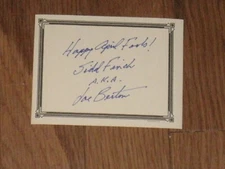 Happy April Fools!
Sidd Finch
A.K.A.
Joe Berton